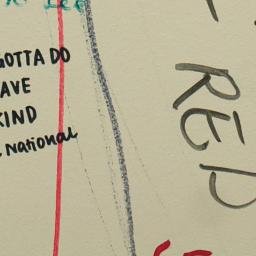 GOTTA DO
AVE
KIND
National
RED